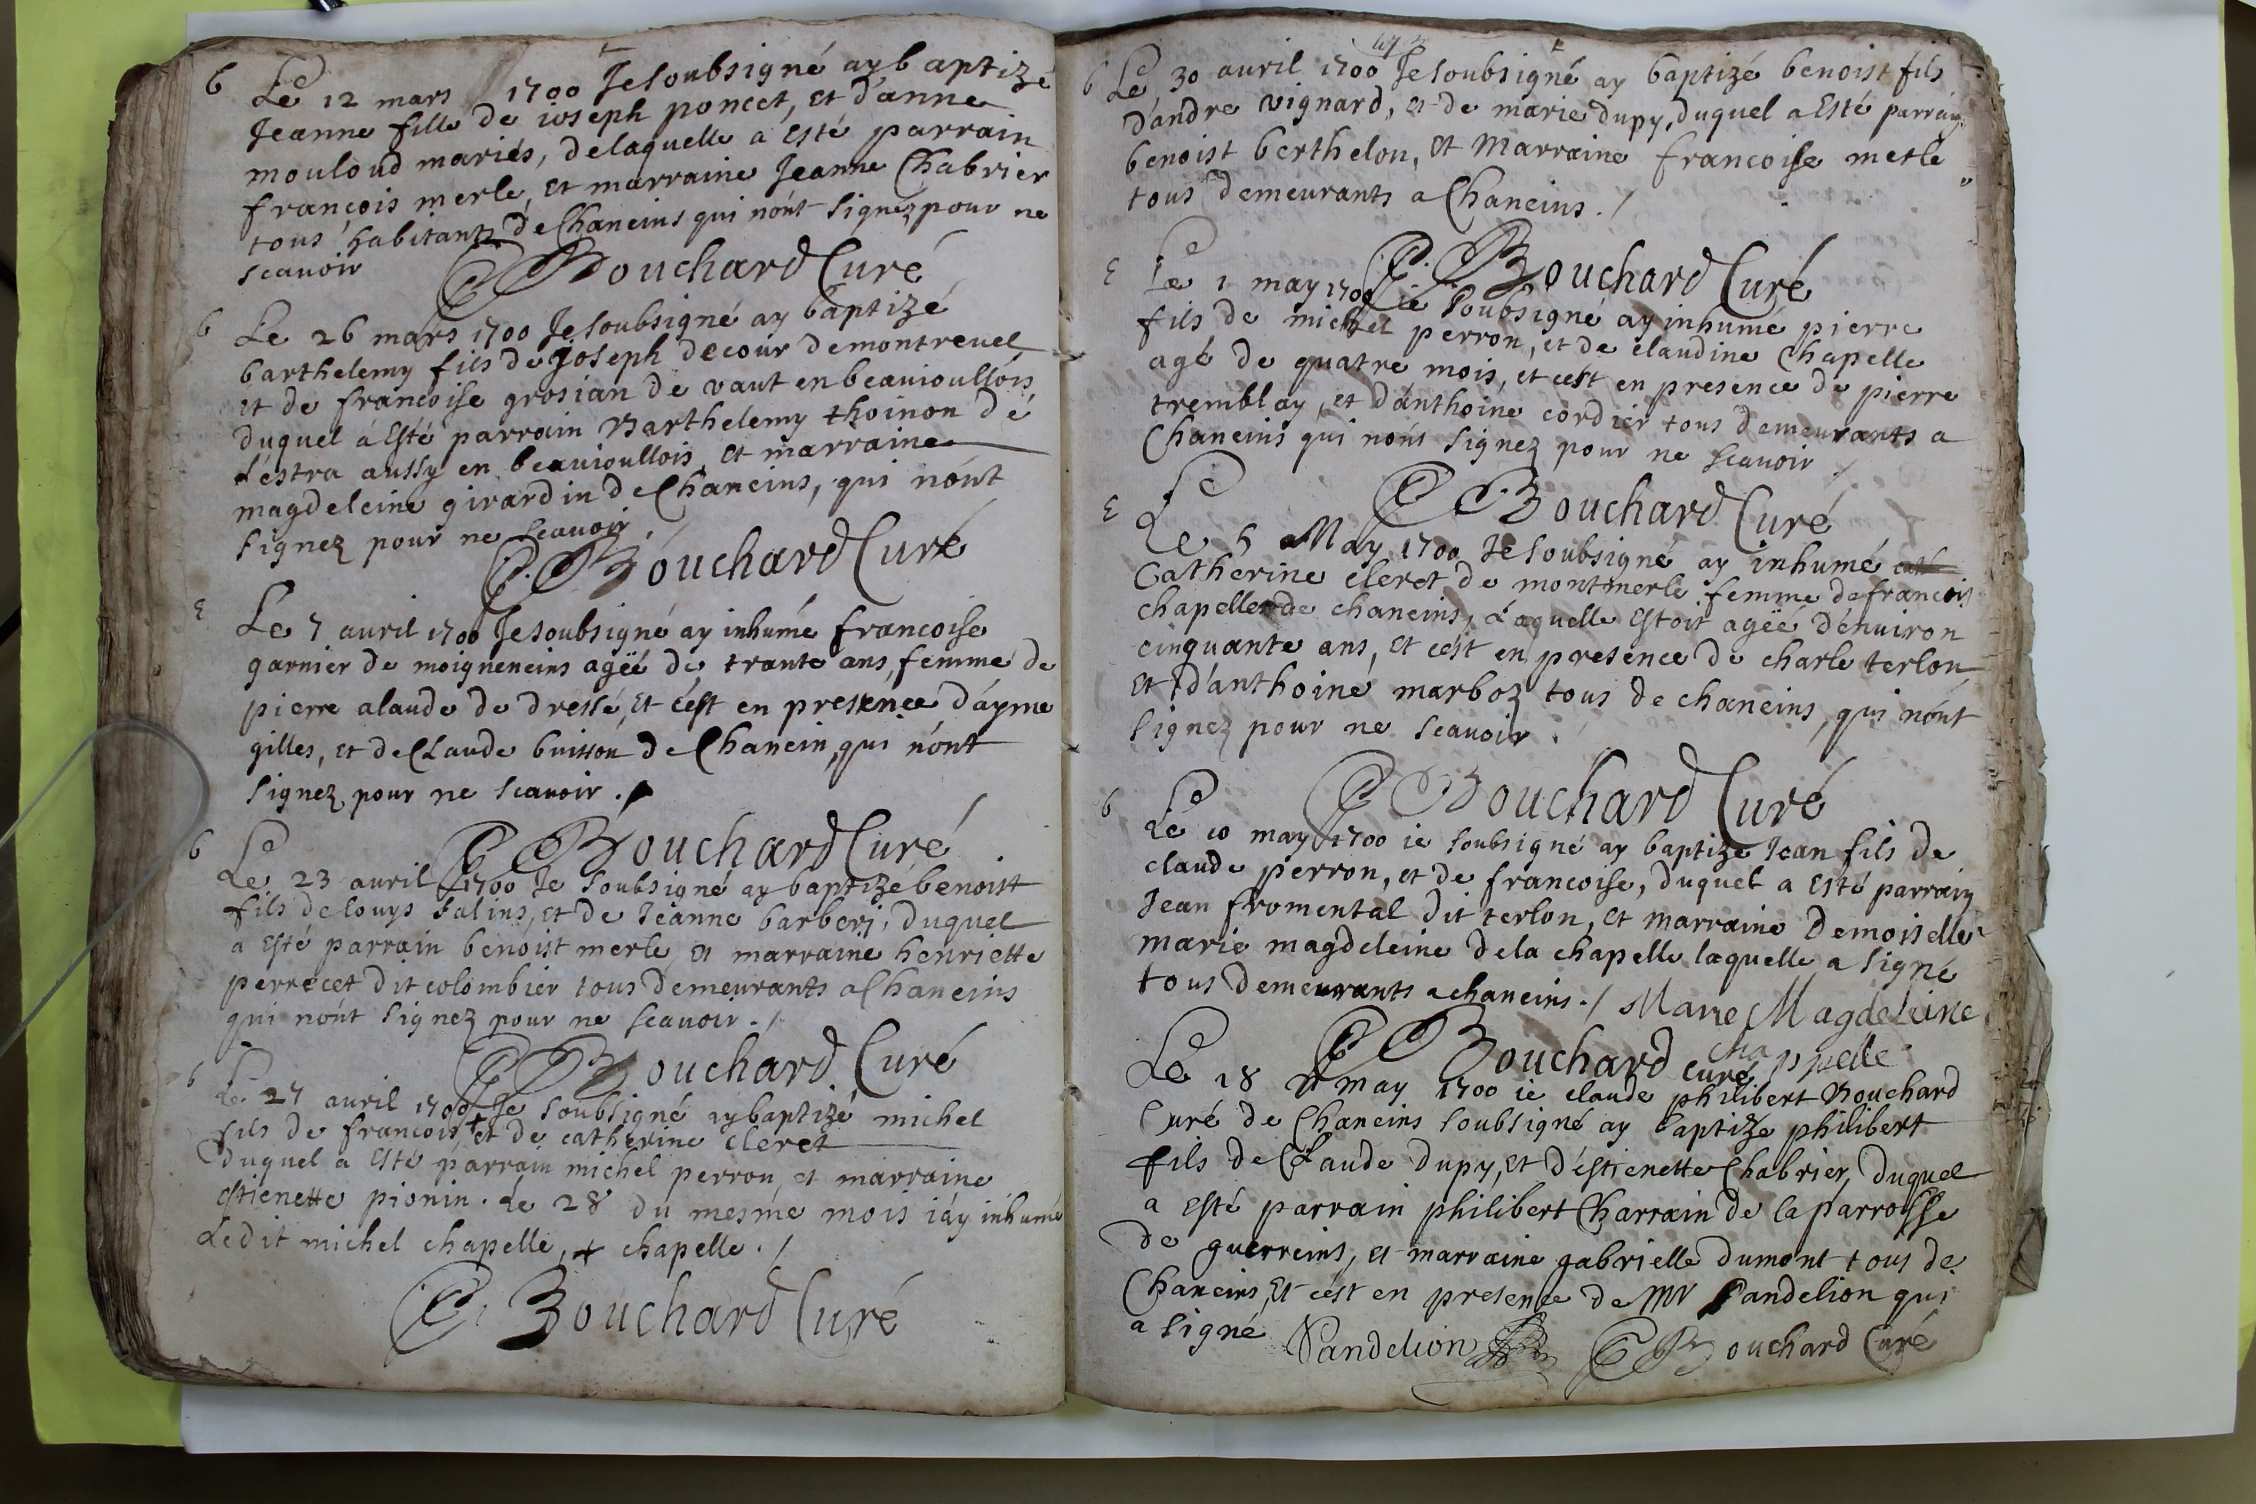 b Le 12 mars 1700 Je soubsigné ay baptizé
Jeanne fille de ioseph poncet, et d'anne
mouloud mariés, delaquelle a esté parrain
françois merle, et marraine Jeanne Chabrier
tous habitants de Chaneins qui nónt signez pour ne
scavoir
C Bouchard Curé
b Le 26 mars 1700 Je soubsigné ay baptizé
barthelemy fils de Joseph decour demontrevel
et de francoise grosian de vaut en beauioullois
duquel á esté parrain Barthelemy thoinon de
Lestra aussy en beauioullois, et marraine
magdeleine girardin de Chaneins, qui nónt
signez pour ne scavoir.
C. Bouchard Curé
E Le 7 auril 1700 Je soubsigné ay inhumé francoise
garnier de moigneneins ageé de trante ans, femme de
pierre alaude de dressé, et cést en presence d'ayme
gilles, et de Claude buisson de Chanein, qui nónt
signez pour ne scavoir.
C Bouchard Curé
b Le 23 auril 1700 Je soubsigné ay baptizé benoist
fils de louys salins, et de Jeanne barberj, duquel
a esté parrain benoist merle et marraine henriette
perrecet dit colombier tous demeurants a Chaneins
qui nónt signez pour ne scavoir. /
C Bouchard Curé
b Le 27 auril 1700 Je soubsigné ay baptizé michel
fils de francois + et de catherine cleret
duquel a esté parrain michel perron, et marraine
estienette pionin. Le 28 du mesme mois iáy inhumé
Ledit michel chapelle, + chapelle. /
C. Bouchard Curé
b Le 30 auril 1700 Je soubsigné ay baptizé benoist fils
d'andre vignard, et de marie dupy, duquel a esté parrain
benoist berthelon, et Marraine francoise merle
tous demeurants a Chaneins. /
C. Bouchard Curé
E Le 1 may 1700 ie soubsigné ay inhumé pierre
fils de michel perron, et de claudine Chapelle
agé de quatre mois, et cest en presence de pierre
tremblay, et dánthoine cordier tous demeurants a
Chaneins qui nónt signez pour ne scavoir /
C Bouchard Curé
E Le 5 May 1700 Je soubsigné ay inhumé
Catherine cleret de montmerle femme de francois
chapelle de chaneins, Laquelle estoit ageé dénuiron
cinquante ans, et cést en presence de charle terlon
et dánthoine marboz tous de chaneins, qui nónt
signez pour ne scavoir.
C Bouchard Curé
b Le 10 may 1700 ie soubsigné ay baptizé Jean fils de
claude perron, et de francoise, duquel a esté parrain
Jean fromental dit terlon, et marraine Demoiselle
marie magdeleine dela chapelle laquelle a signé
tous demeurants a chaneins. / Marie Magdeleine
chappelle
C Bouchard curé
Le 18 may 1700 ie claude philibert Bouchard
Curé de Chaneins soubsigné ay baptizé philibert
fils de Claude dupy, et d'éstienette Chabrier, duquel
a esté parrain philibert Charrain de la parroisse
de guerreins, et marraine gabrielle dumont tous de
Chaneins, et cést en presence de Mr Sandelion qui
a signé Sandelion C Bouchard Curé